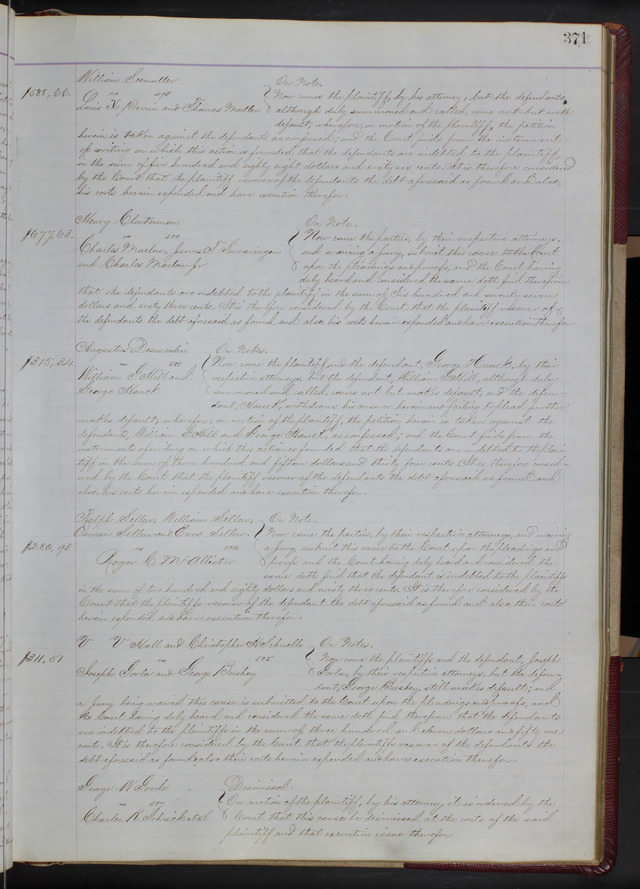 371
William Seemuller On Note
$588,66. vs 490 Now comes the plaintiff, by his attorney, but the defendants,
Louis X. Perrin and Thomas Mullen although duly summoned and called, come not but make
default, wherefore, on motion of the plaintiff, the petition
herein is taken against the defendants as confessed; and the Court finds from the instrument
of writing on which this action is founded, that the defendants are indebted to the plaintiff
in the sum of five hundred and eighty eight dollars and sixty six cents. It is therefore considered
by the Court that the plaintiff recover of the defendants the debt aforesaid as found and also,
his costs herein expended and have execution therefor.
Henry Clasterman On Note.
$677,63. vs 500 Now come the parties, by their respective attorneys,
Charles Marlow, James T. Swearingen and waiving a jury, submit this cause to the Court
and Charles Marlow Jr upon the pleadings and proofs, and the Court having
duly heard and considered the same doth find therefrom
that the defendants are indebted to the plaintiff in the sum of Six hundred and seventy seven
dollars and sixty three cents. It is therefore considered by the Court that the plaintiff recover of
the defendants the debt aforesaid as found and also his costs herein expended and have execution therefor
Augustus Desmoulin On Notes.
$315,34 vs 501 Now come the plaintiff and the defendant, George Hauck, by their
William G Hill and respective attorneys, but the defendant, William G Hill, although duly
George Hauck summoned and called, comes not but makes default, and the defen-
dant, Hauck, withdraws his answer herein and failing to plead further
makes default, wherefore, on motion of the plaintiff, the petition herein is taken against the
defendants, William G Hill and George Hauck, as confessed; and the Court finds from the
instruments of writing on which this action is founded that the defendants are indebted to the plain-
tiff in the sum of three hundred and fifteen dollars and thirty four cents. It is therefore consid-
ered by the Court that the plaintiff recover of the defendants the debt aforesaid as found and
also his costs herein expended and have execution therefor.
Ralph Sellew, William Sellew, On Note.
Osman Sellew and Enos Sellew. Now come the parties, by their respective attorneys, and waiving
$280,93 vs 502 a jury, submit this cause to the Court upon the pleadings and
Roger C McAllister proofs and the Court having duly heard and considered the
same doth find that the defendant is indebted to the plaintiffs
in the sum of two hundred and eighty dollars and ninety three cents. It is therefore considered by the
Court that the plaintiffs recover of the defendant the debt aforesaid as found and also their costs
herein expended and have execution therefor.
V V Hall and Christopher H Schnelle On Notes.
$311,51 vs 505 Now come the plaintiffs and the defendant, Joseph
Joseph and George Bushey by their respective attorneys, but the defen-
dant, George Bushey, still makes default; and
a jury being waived this cause is submitted to the Court upon the pleadings and proofs, and
the Court having duly heard and considered the same doth find therefrom that the defendants
are indebted to the plaintiffs in the sum of three hundred and eleven dollars and fifty one
cents. It is therefore considered by the Court that the plaintiffs recover of the defendants the
debt aforesaid as found & also their costs herein expended and have execution therefor.
George W Goode Dismissal.
vs 507 On motion of the plaintiff, by his attorney, it is ordered by the
Charles R Court that this cause be dismissed at the costs of the said
plaintiff and that execution issue therefor.